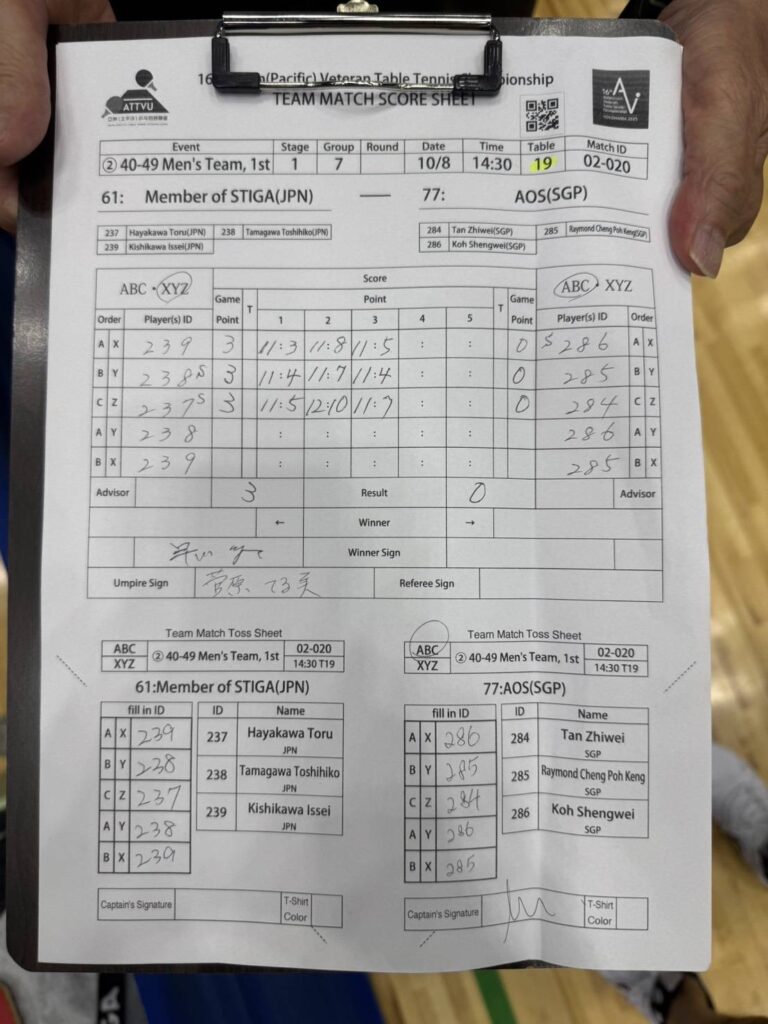 16 (Pacific) Veteran Table Tennis Championship
TEAM MATCH SCORE SHEET
ATTVU
16th
AV
Event Stage Group Round Date Time Table Match ID
② 40-49 Men's Team, 1st 1 7 10/8 14:30 19 02-020
61: Member of STIGA(JPN) — 77: AOS(SGP)
237 Hayakawa Toru(JPN) 238 Tamagawa Toshihiko(JPN) 284 Tan Zhiwei(SGP) 285 Raymond Cheng Poh Keng(SGP)
239 Kishikawa Issei(JPN) 286 Koh Shengwei(SGP)
ABC・XYZ Score ABC・XYZ
Game Point T Point T Game Point
Order Player(s) ID 1 2 3 4 5 Player(s) ID Order
A X 239 3 11:3 11:8 11:5 : : 0 S 286 A X
B Y 238 S 3 11:4 11:7 11:4 : : 0 285 B Y
C Z 237 S 3 11:5 12:10 11:7 : : 0 284 C Z
A Y 238 : : : : : 286 A Y
B X 239 : : : : : 285 B X
Advisor 3 Result 0 Advisor
← Winner →
Winner Sign
Umpire Sign 菅原 てる美 Referee Sign
Team Match Toss Sheet
ABC XYZ ② 40-49 Men's Team, 1st 02-020 14:30 T19
61:Member of STIGA(JPN)
fill in ID ID Name
A X 239 237 Hayakawa Toru JPN
B Y 238 238 Tamagawa Toshihiko JPN
C Z 237 239 Kishikawa Issei JPN
A Y 238
B X 239
Captain's Signature T-Shirt Color
Team Match Toss Sheet
ABC XYZ ② 40-49 Men's Team, 1st 02-020 14:30 T19
77:AOS(SGP)
fill in ID ID Name
A X 286 284 Tan Zhiwei SGP
B Y 285 285 Raymond Cheng Poh Keng SGP
C Z 284 286 Koh Shengwei SGP
A Y 286
B X 285
Captain's Signature T-Shirt Color